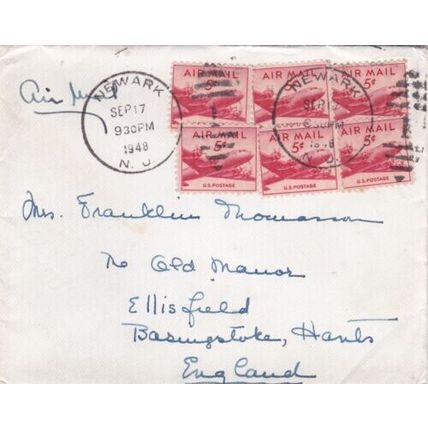 Air Mail
NEWARK
SEP 17
930PM
1948
N. J.
AIR MAIL 5¢
AIR MAIL 5¢
AIR MAIL 5¢
NEWARK
SEP 17
930PM
1948
N. J.
AIR MAIL 5¢ U.S. POSTAGE
AIR MAIL 5¢ U.S. POSTAGE
AIR MAIL 5¢ U.S. POSTAGE
Mrs. Franklin Thomasson
The Old Manor
Ellisfield
Basingstoke, Hants
England